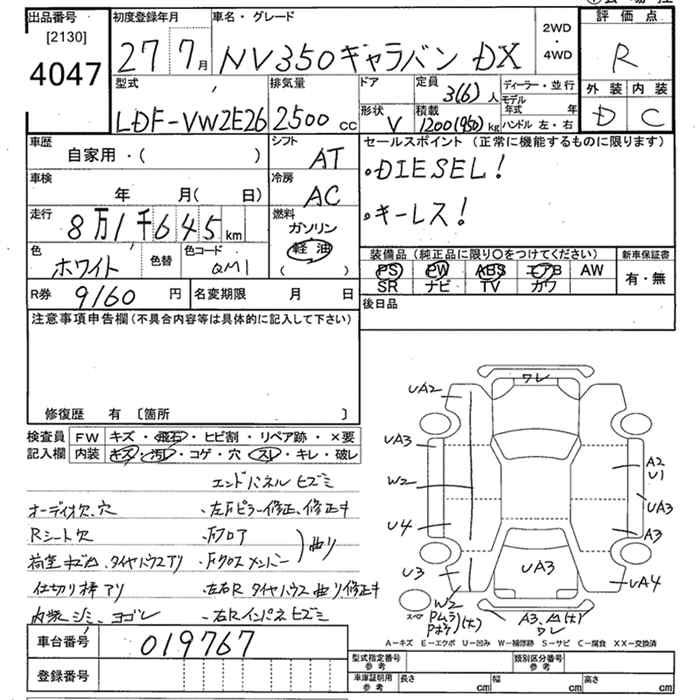 出品番号
[2130]
4047
初度登録年月
27 7月
車名・グレード
NV350キャラバン DX
2WD
・
4WD
評価点
R
外装 内装
D C
型式
LDF-VW2E26
排気量
2500cc
ドア
形状
V
定員
3(6)人
積載
1200(950)kg
ディーラー・並行
モデル年式 年
ハンドル 左・右
車歴
自家用・( )
シフト
AT
セールスポイント(正常に機能するものに限ります)
・DIESEL!
・キーレス!
車検
年 月( 日)
冷房
AC
走行
8万1千645km
燃料
ガソリン
軽油
( )
色
ホワイト
色替
色コード
QM1
装備品(純正品に限り○をつけてください)
PS PW ABS エアB AW
SR ナビ TV カワ
新車保証書
有・無
R券 9160円
名変期限 月 日
後日品
注意事項申告欄(不具合内容等は具体的に記入して下さい)
修復歴 有〔箇所 〕
検査員記入欄
FW キズ・飛石・ヒビ割・リペア跡・×要
内装 キズ・汚レ・コゲ・穴・スレ・キレ・破レ
エンドパネルヒズミ
オーディオ欠、穴 ・左Fピラー修正、修正キ
Rシート欠 ・Fフロア
・Fクロスメンバー 曲り
仕切り棒アリ ・左右Rタイヤハウス曲り修正キ
内張シミ、ヨゴレ ・右Rインパネヒズミ
ワレ
UA2
UA3
W2
U4
U3
A2
U1
UA3
A3
UA4
UA3
スペア
W2
ワレ
A-キズ E-エクボ U-凹み W-補修跡 S-サビ C-腐食 XX-交換済
車台番号 019767
登録番号
型式指定番号 参考
類別区分番号 参考
車庫証明用 参考
長さ cm
幅 cm
高さ cm